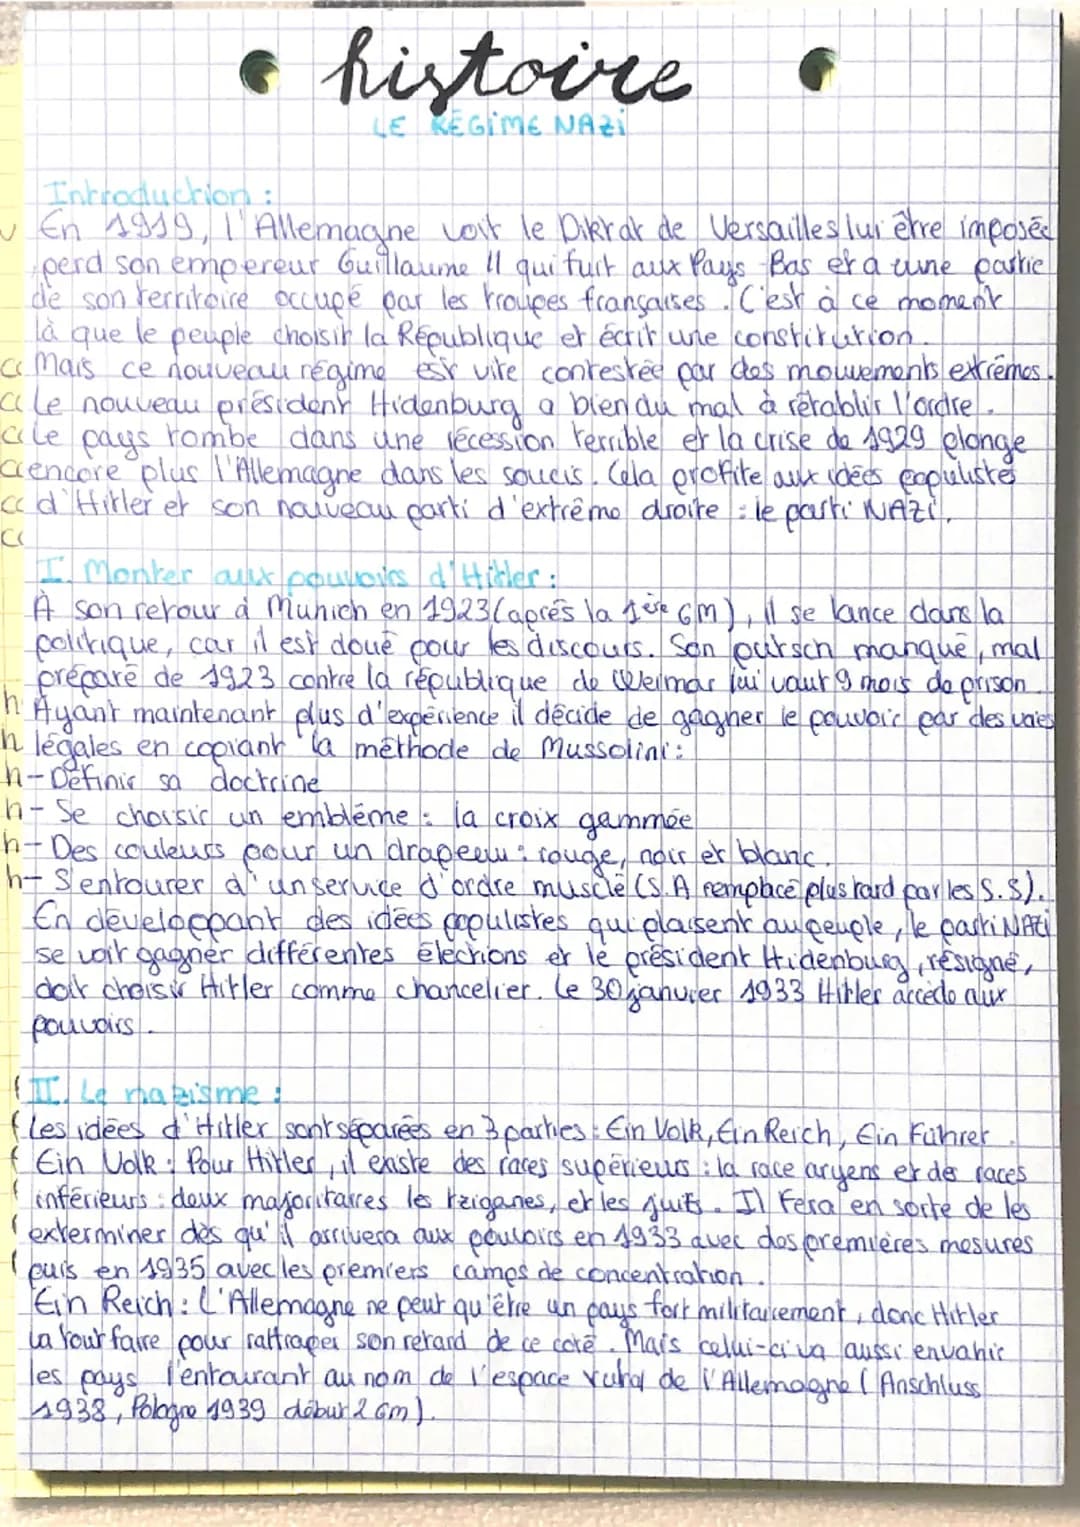 histoire
LE RÉGIME NAZI
Introduction :
En 1919, l'Allemagne voit le Diktat de Versailles lui être imposée
perd son empereur Guillaume II qui fuit aux Pays-Bas et a une partie
de son territoire occupé par les troupes françaises. C'est à ce moment
là que le peuple choisit la République et écrit une constitution.
Mais ce nouveau régime est vite contestée par des mouvements extrêmes.
Le nouveau président Hidenburg a bien du mal à rétablir l'ordre.
Le pays tombe dans une récession terrible et la crise de 1929 plonge
encore plus l'Allemagne dans les soucis. Cela profite aux idées populistes
d'Hitler et son nouveau parti d'extrême droite : le parti NAZI.
I. Monter aux pouvoirs d'Hitler :
À son retour à Munich en 1923 (après la 1ère GM), il se lance dans la
politique, car il est doué pour les discours. Son putsch manqué, mal
préparé de 1923 contre la république de Weimar lui vaut 9 mois de prison.
Ayant maintenant plus d'expérience il décide de gagner le pouvoir par des voies
légales en copiant la méthode de Mussolini :
- Définir sa doctrine
- Se choisir un emblème : la croix gammée
- Des couleurs pour un drapeau : rouge, noir et blanc.
- S'entourer d'un service d'ordre musclé (S.A remplacé plus tard par les S.S).
En développant des idées populistes qui plaisent au peuple, le parti NAZI
se voit gagner différentes élections et le président Hidenburg, résigné,
doit choisir Hitler comme chancelier. Le 30 janvier 1933 Hitler accède aux
pouvoirs.
II. Le nazisme :
Les idées d'Hitler sont séparées en 3 parties : Ein Volk, Ein Reich, Ein Führer.
Ein Volk : Pour Hitler, il existe des races supérieurs : la race aryens et des races
inférieurs : deux majoritaires les tziganes, et les juifs. Il fera en sorte de les
exterminer dès qu'il arrivera aux pouvoirs en 1933 avec des premières mesures
puis en 1935 avec les premiers camps de concentration.
Ein Reich : L'Allemagne ne peut qu'être un pays fort militairement, donc Hitler
va tout faire pour rattraper son retard de ce coté. Mais celui-ci va aussi envahir
les pays l'entourant au nom de l'espace vital de l'Allemagne (Anschluss
1938, Pologne 1939 début 2 GM).